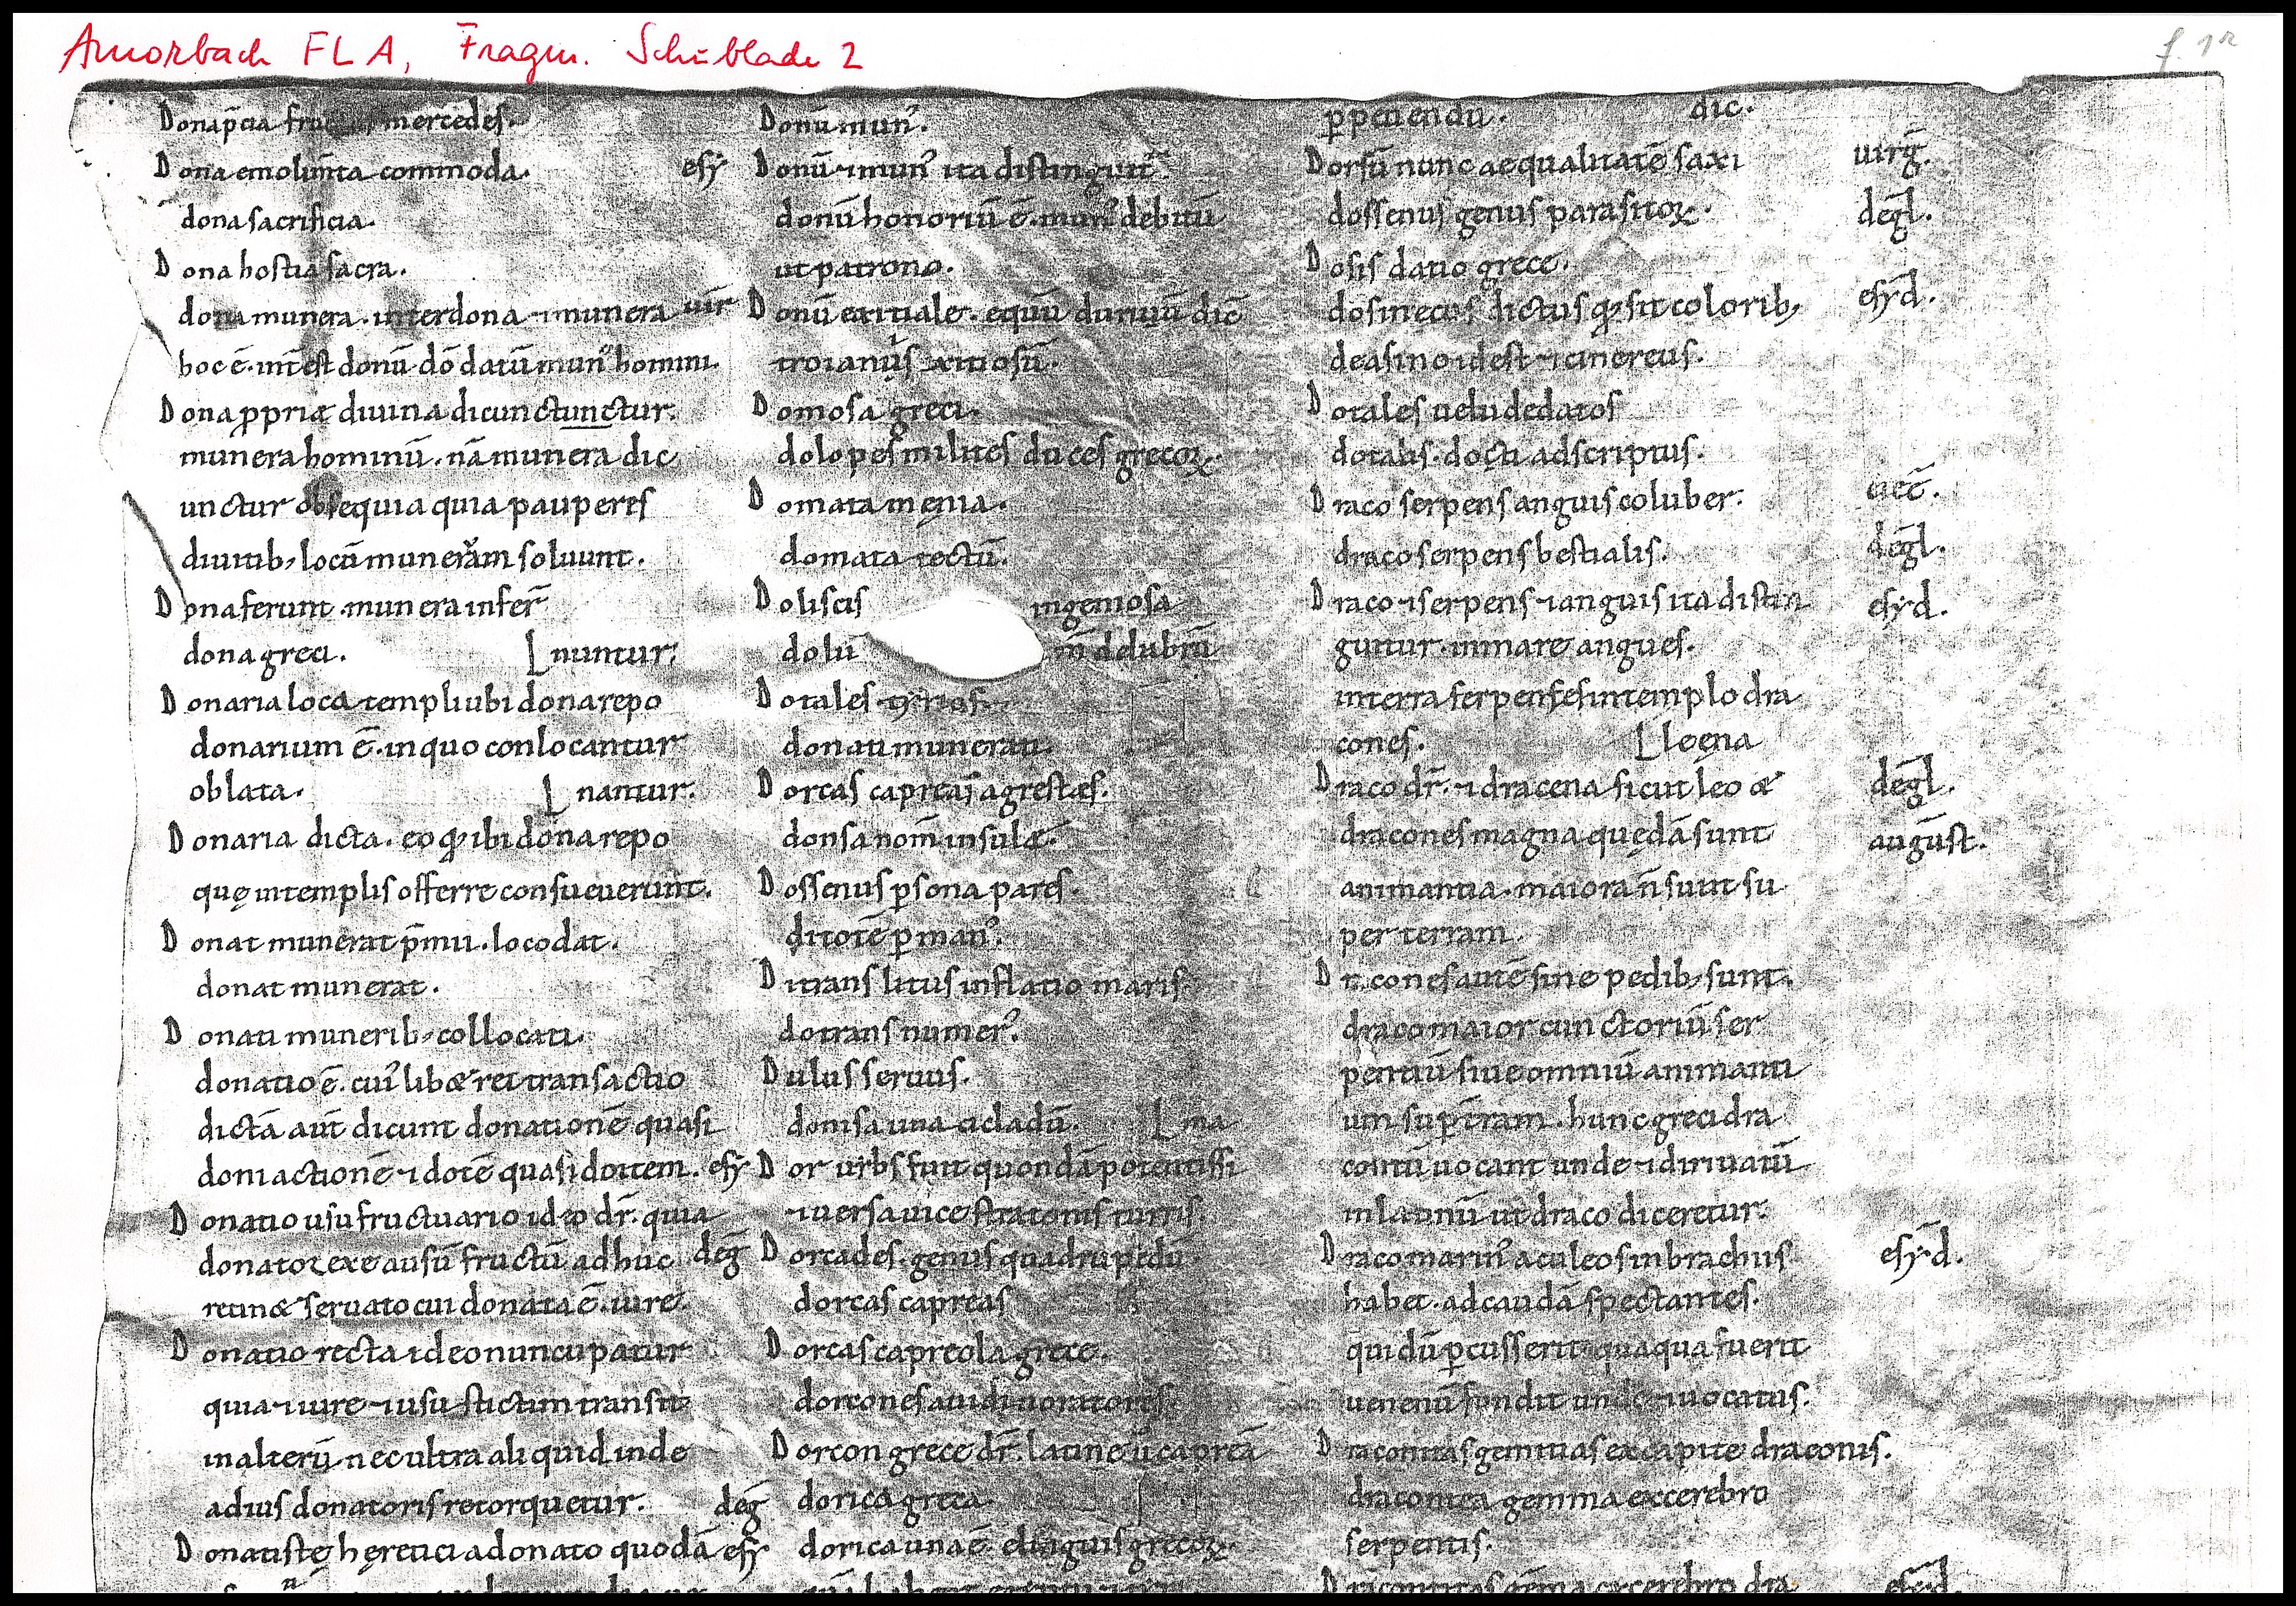 Amorbach FLA, Fragm. Schublade 2
f. 1r
Donap̄cia mercedes.
Dona emolum̄ta commoda.
dona sacrificia.
Dona hostia sacra.
dona munera. inter dona ⁊ munera
hoc ē. int̄est donū dō datū mun᾿ homini.
Dona ꝓpriæ diuina dicunctunctur.
munera hominū. nā munera dic
unctur obsequia quia pauperes
diuitib; locū munerām soluunt.
Dona ferunt. munera infer̄
dona greci. nuntur.
Donaria loca templi ubi dona repo
donarium ē. in quo conlocantur
oblata. nantur.
Donaria dicta. eo qđ ibi dona repo
quę in templis offerre consueuerunt.
Donat munerat p̄mii. loco dat.
donat munerat.
Donati munerib; collocati.
donatio ē. cui᾿ libæ rei transactio
dictā aut̄ dicunt donationē quasi
doni actionē ⁊ dotē quasi do item.
Donatio usu fructuario ideo dr̄. quia
donator exe ausū fructū ad huc
retinæ seruato cui donata ē. iure.
Donatio recta ideo nuncupatur
quia ⁊ iure ⁊ usu stictim transit
in alterū. nec ultra aliquid inde
ad ius donatoris retorquetur.
Donatistę hęretici a donato quodā
Donū mun᾿.
esy Donū ⁊ mun᾿ ita distinguit᾿
donū honoriū ē. mun᾿ debitū
ut patrono.
uir Donū exitiale. equū duriuū dic̄
troianus exitiosū.
Domosa greci.
dolopes milites duces grecoꝝ.
Domata menia.
domata tectū.
Doliscis ingeniosa
dolu m̄ delubrū
Dotales
donati munerati.
Dorcas capreas agrestes.
donsa nom̄ insulæ.
Dossenus ꝑsona pares.
ditotē ꝑman᾿.
Ditrans litus inflatio maris
dotrans numer᾿.
Dulus seruus.
donisa una cicladū. ma
esy Dor urbs fuit quondā potentissi
⁊ uersa uice stratonis turris.
deg̅ Dorcades. genus quadrupedū
dorcas capreas
Dorcas capreola grece.
dorcones auidi uoratores
Dorcon grece dr̄. latine ū capreā
deg̅ dorica greca
esy dorica una ē. elinguis grecoꝝ.
ꝑpetiendū. dic.
Dorsū nunc aequalitatē saxi uirg̅.
dossenus genus parasitoꝝ. deg̅l.
Dosis datio grece.
dosinecus dictus qđ sit colorib; esyd.
de asino idest ⁊ cinereus.
Dotales uelu dedatos
dotalis. docti adscriptus.
Draco serpens anguis coluber.
draco serpens bestialis. deg̅l.
Draco ⁊ serpens ⁊ anguis ita distin esyd.
guitur. in mare angues.
in terra serpenses in templo dra
cones. loęna
Draco dr̄. ⁊ dracena sicut leo æ deg̅l.
dracones magna quędā sunt august.
animantia. maiora n̄ sunt su
per terram.
Drcones autē sine pedib; sunt.
draco maior cunctoriū ser
pentiū siue omniū animanti
um suꝑ t̄ram. hunc greci dra
contū uocant unde ⁊ diriuatū
in latinū ut draco diceretur.
Draco marin᾿ aculeos in brachiis esyd.
habet. ad caudā spectantes.
qui dū ꝑcusserit quaqua fuerit
uenenū fundit unde ⁊ uocatus.
Dracontas gemmas ex capite draconis.
dracontea gemma ex cerebro
serpentis.
Dracontitas gēma ex cerebro dra esyd.